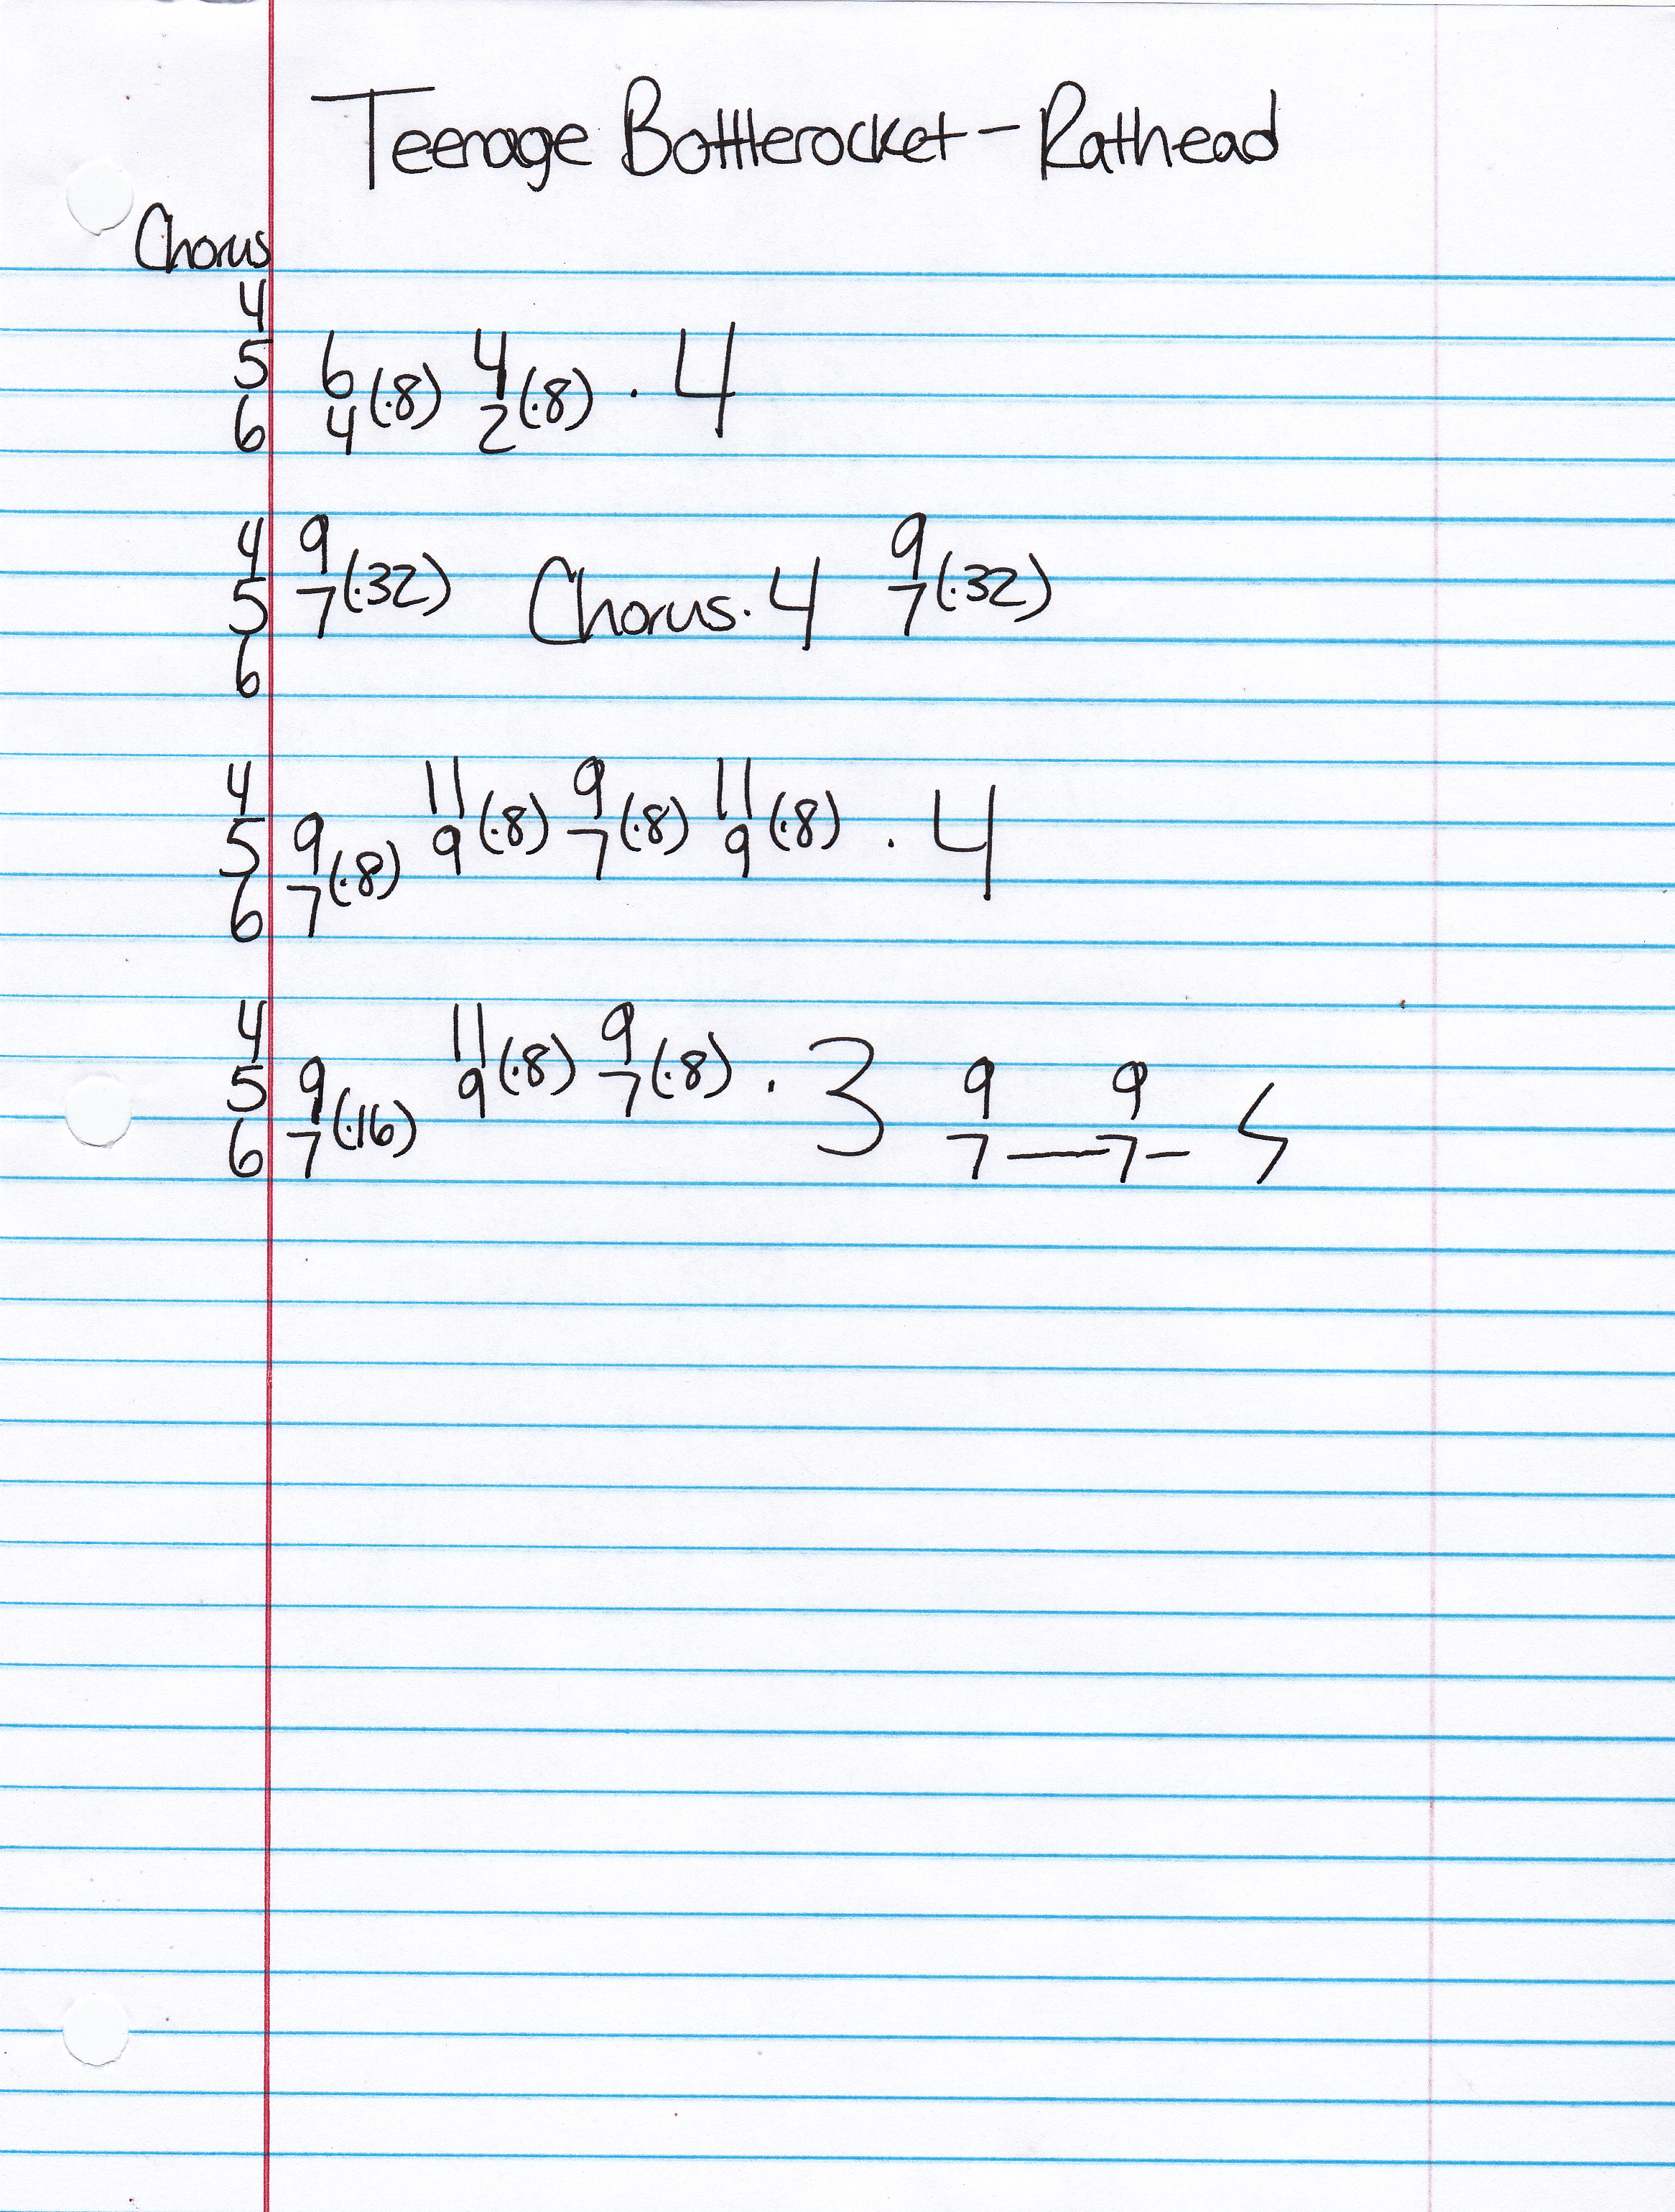 Teenage Bottlerocket - Rathead
Chorus
4
5 6 (·8) 4 (·8) · 4
6 4 2
4 9 9
5 7 (·32) Chorus · 4 7 (·32)
6
4 11 9 11
5 9 (·8) 9 (·8) 7 (·8) 9 (·8) · 4
6 7
4 11 9
5 9 (·16) 9 (·8) 7 (·8) · 3 9 9
6 7 7 — 7 —